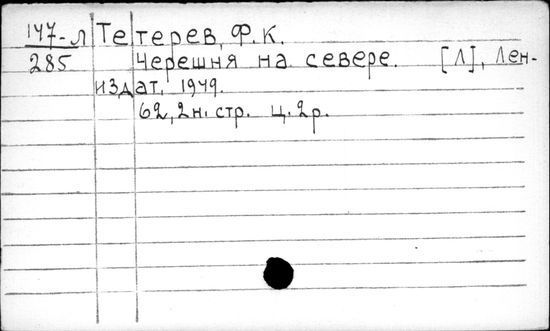 147-л Тетерев, Ф.К.
285 Черешня на севере. [Л], Лен-
издат, 1949.
62, 2н. стр. ц. 2р.